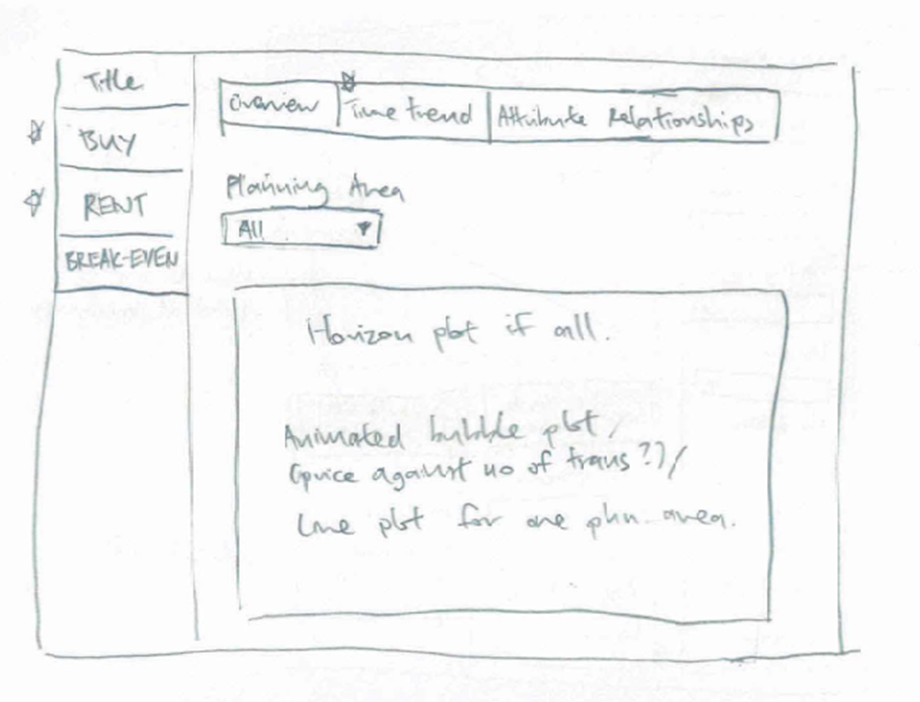 Title
BUY
RENT
BREAK-EVEN
Overview
Time trend
Attribute Relationships
Planning Area
All
Horizon plot if all.
Animated bubble plot /
(price against no of trans?) /
Line plot for one pln. area.